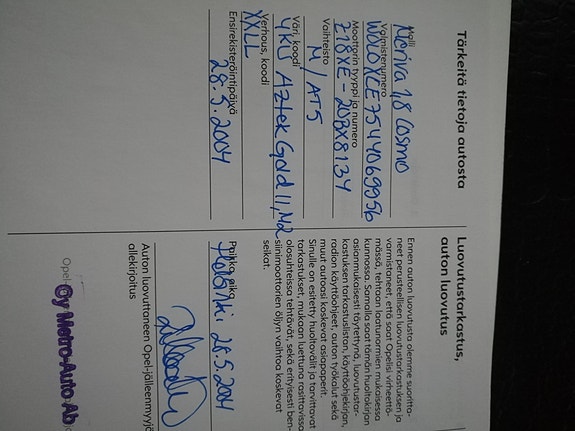 Tärkeitä tietoja autosta
Malli
Meriva 1,8 Cosmo
Valmistenumero
W0L0XCE7544069956
Moottorin tyyppi ja numero
Z18XE - 20BX8134
Vaihteisto
M/AT5
Väri, koodi
4KU Aztek Gold II, M2
Verhous, koodi
XXLL
Ensirekisteröintipäivä
28.5.2004
Luovutustarkastus,
auton luovutus
Ennen auton luovutusta olemme suoritta-
neet perusteellisen luovutustarkastuksen ja
varmistaneet, että saat Opelisi virheettö-
mässä, tehtaan laatunormien mukaisessa
kunnossa. Samalla saat tämän huoltokirjan
asianmukaisesti täytettynä, luovutustar-
kastuksen tarkastuslistan, käyttöohjekirjan,
radion käyttöohjeet, auton työkalut sekä
muut autoasi koskevat asiapaperit.
Sinulle on esitetty huoltovälit ja tarvittavat
tarkastukset, mukaan luettuna rasittavissa
olosuhteissa tehtävät, sekä erityisesti ben-
siinimoottorien öljyn vaihtoa koskevat
seikat.
Paikka, aika
28.5.2004
Auton luovuttaneen Opel-jälleenmyyjä
allekirjoitus
Opel
Oy Metro-Auto Ab